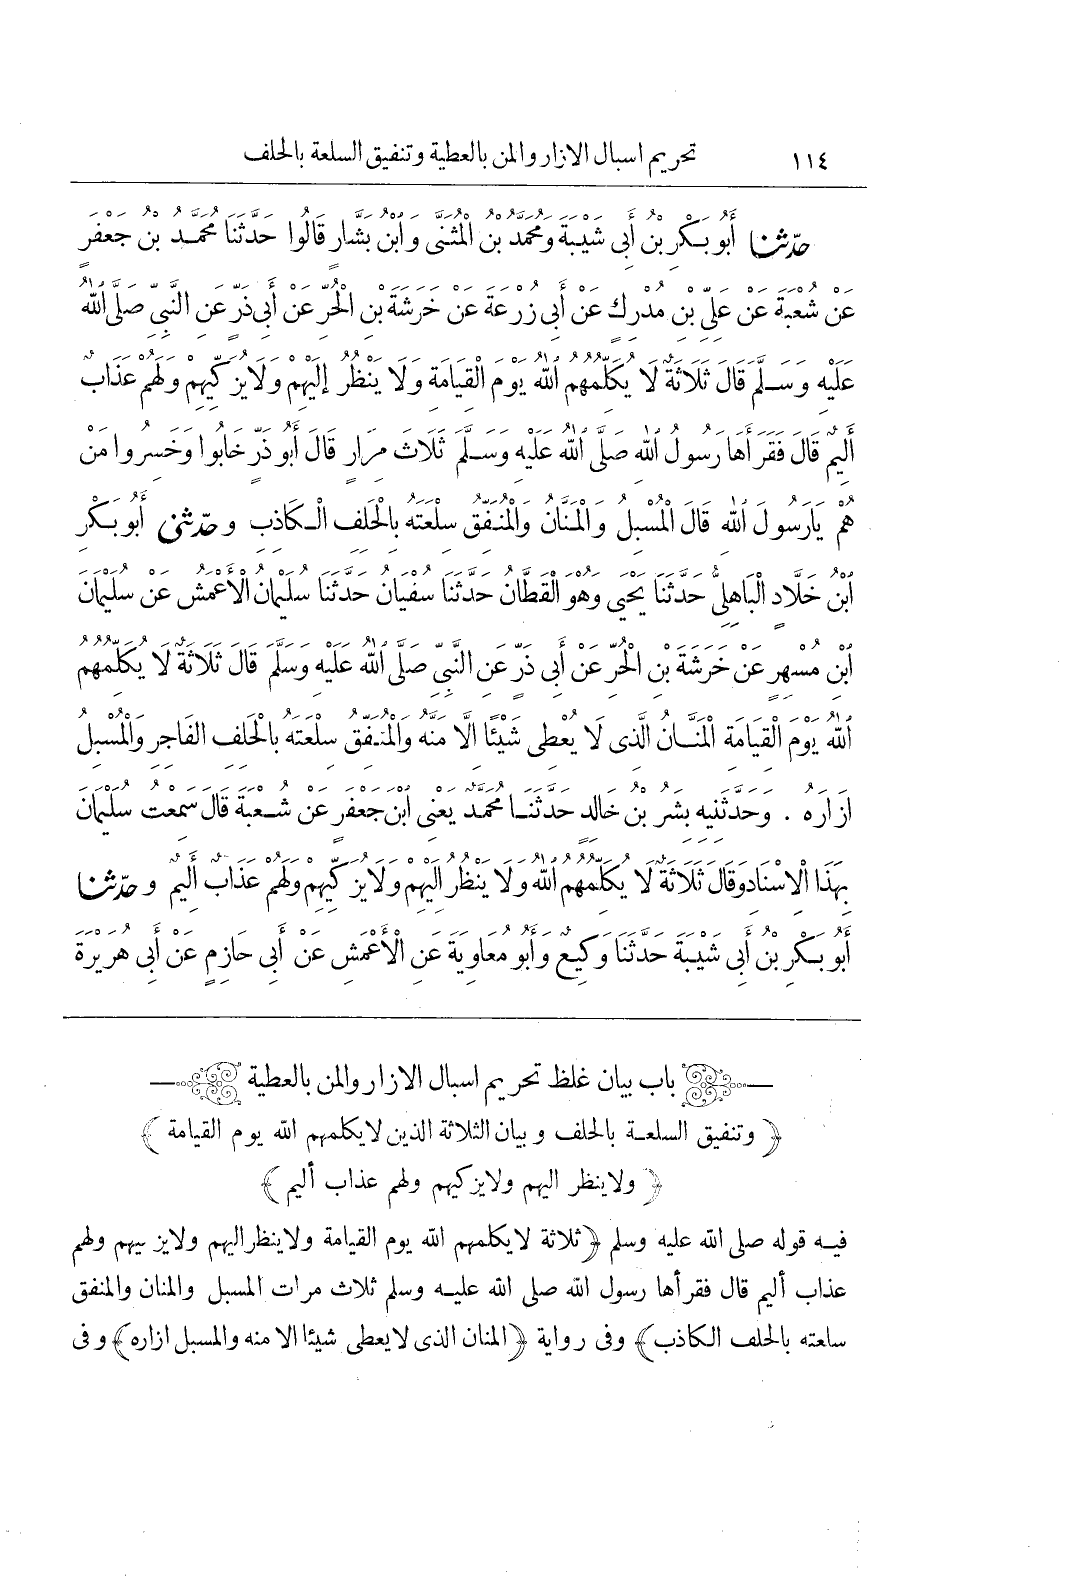 ١١٤ تحريم اسبال الازار والمن بالعطية وتنفيق السلعة بالحلف
حدّثنا أَبُو بَكْرِ بْنُ أَبِي شَيْبَةَ وَمُحَمَّدُ بْنُ الْمُثَنَّى وَابْنُ بَشَّارٍ قَالُوا حَدَّثَنَا مُحَمَّدُ بْنُ جَعْفَرٍ
عَنْ شُعْبَةَ عَنْ عَلِيِّ بْنِ مُدْرِكٍ عَنْ أَبِي زُرْعَةَ عَنْ خَرَشَةَ بْنِ الْحُرِّ عَنْ أَبِي ذَرٍّ عَنِ النَّبِيِّ صَلَّى اللهُ
عَلَيْهِ وَسَلَّمَ قَالَ ثَلَاثَةٌ لَا يُكَلِّمُهُمُ اللهُ يَوْمَ الْقِيَامَةِ وَلَا يَنْظُرُ إِلَيْهِمْ وَلَا يُزَكِّيهِمْ وَلَهُمْ عَذَابٌ
أَلِيمٌ قَالَ فَقَرَأَهَا رَسُولُ اللهِ صَلَّى اللهُ عَلَيْهِ وَسَلَّمَ ثَلَاثَ مِرَارٍ قَالَ أَبُو ذَرٍّ خَابُوا وَخَسِرُوا مَنْ
هُمْ يَارَسُولَ اللهِ قَالَ الْمُسْبِلُ وَالْمَنَّانُ وَالْمُنَفِّقُ سِلْعَتَهُ بِالْحَلِفِ الْكَاذِبِ و حدّثنى أَبُو بَكْرِ
ابْنُ خَلَّادٍ الْبَاهِلِيُّ حَدَّثَنَا يَحْيَى وَهُوَ الْقَطَّانُ حَدَّثَنَا سُفْيَانُ حَدَّثَنَا سُلَيْمَانُ الْأَعْمَشُ عَنْ سُلَيْمَانَ
ابْنِ مُسْهِرٍ عَنْ خَرَشَةَ بْنِ الْحُرِّ عَنْ أَبِي ذَرٍّ عَنِ النَّبِيِّ صَلَّى اللهُ عَلَيْهِ وَسَلَّمَ قَالَ ثَلَاثَةٌ لَا يُكَلِّمُهُمُ
اللهُ يَوْمَ الْقِيَامَةِ الْمَنَّانُ الَّذِى لَا يُعْطِى شَيْئًا الَّا مَنَّهُ وَالْمُنَفِّقُ سِلْعَتَهُ بِالْحَلِفِ الْفَاجِرِ وَالْمُسْبِلُ
ازَارَهُ . وَحَدَّثَنِيهِ بِشْرُ بْنُ خَالِدٍ حَدَّثَنَا مُحَمَّدٌ يَعْنِى ابْنَ جَعْفَرٍ عَنْ شُعْبَةَ قَالَ سَمِعْتُ سُلَيْمَانَ
بِهَذَا الْاسْنَادِ وَقَالَ ثَلَاثَةٌ لَا يُكَلِّمُهُمُ اللهُ وَلَا يَنْظُرُ الَيْهِمْ وَلَا يُزَكِّيهِمْ وَلَهُمْ عَذَابٌ أَلِيمٌ و حدّثنا
أَبُو بَكْرِ بْنُ أَبِي شَيْبَةَ حَدَّثَنَا وَكِيعٌ وَأَبُو مُعَاوِيَةَ عَنِ الْأَعْمَشِ عَنْ أَبِي حَازِمٍ عَنْ أَبِي هُرَيْرَةَ
باب بيان غلظ تحريم اسبال الازار والمن بالعطية
﴿ وتنفيق السلعة بالحلف و بيان الثلاثة الذين لايكلمهم الله يوم القيامة ﴾
﴿ ولاينظر اليهم ولايزكيهم ولهم عذاب أليم ﴾
فيه قوله صلى الله عليه وسلم ﴿ثلاثة لايكلمهم الله يوم القيامة ولاينظر اليهم ولايز يهم ولهم
عذاب أليم قال فقرأها رسول الله صلى الله عليه وسلم ثلاث مرات المسبل والمنان والمنفق
سلعته بالحلف الكاذب﴾ وفى رواية ﴿المنان الذى لايعطى شيئا الا منه والمسبل ازاره﴾ وفى